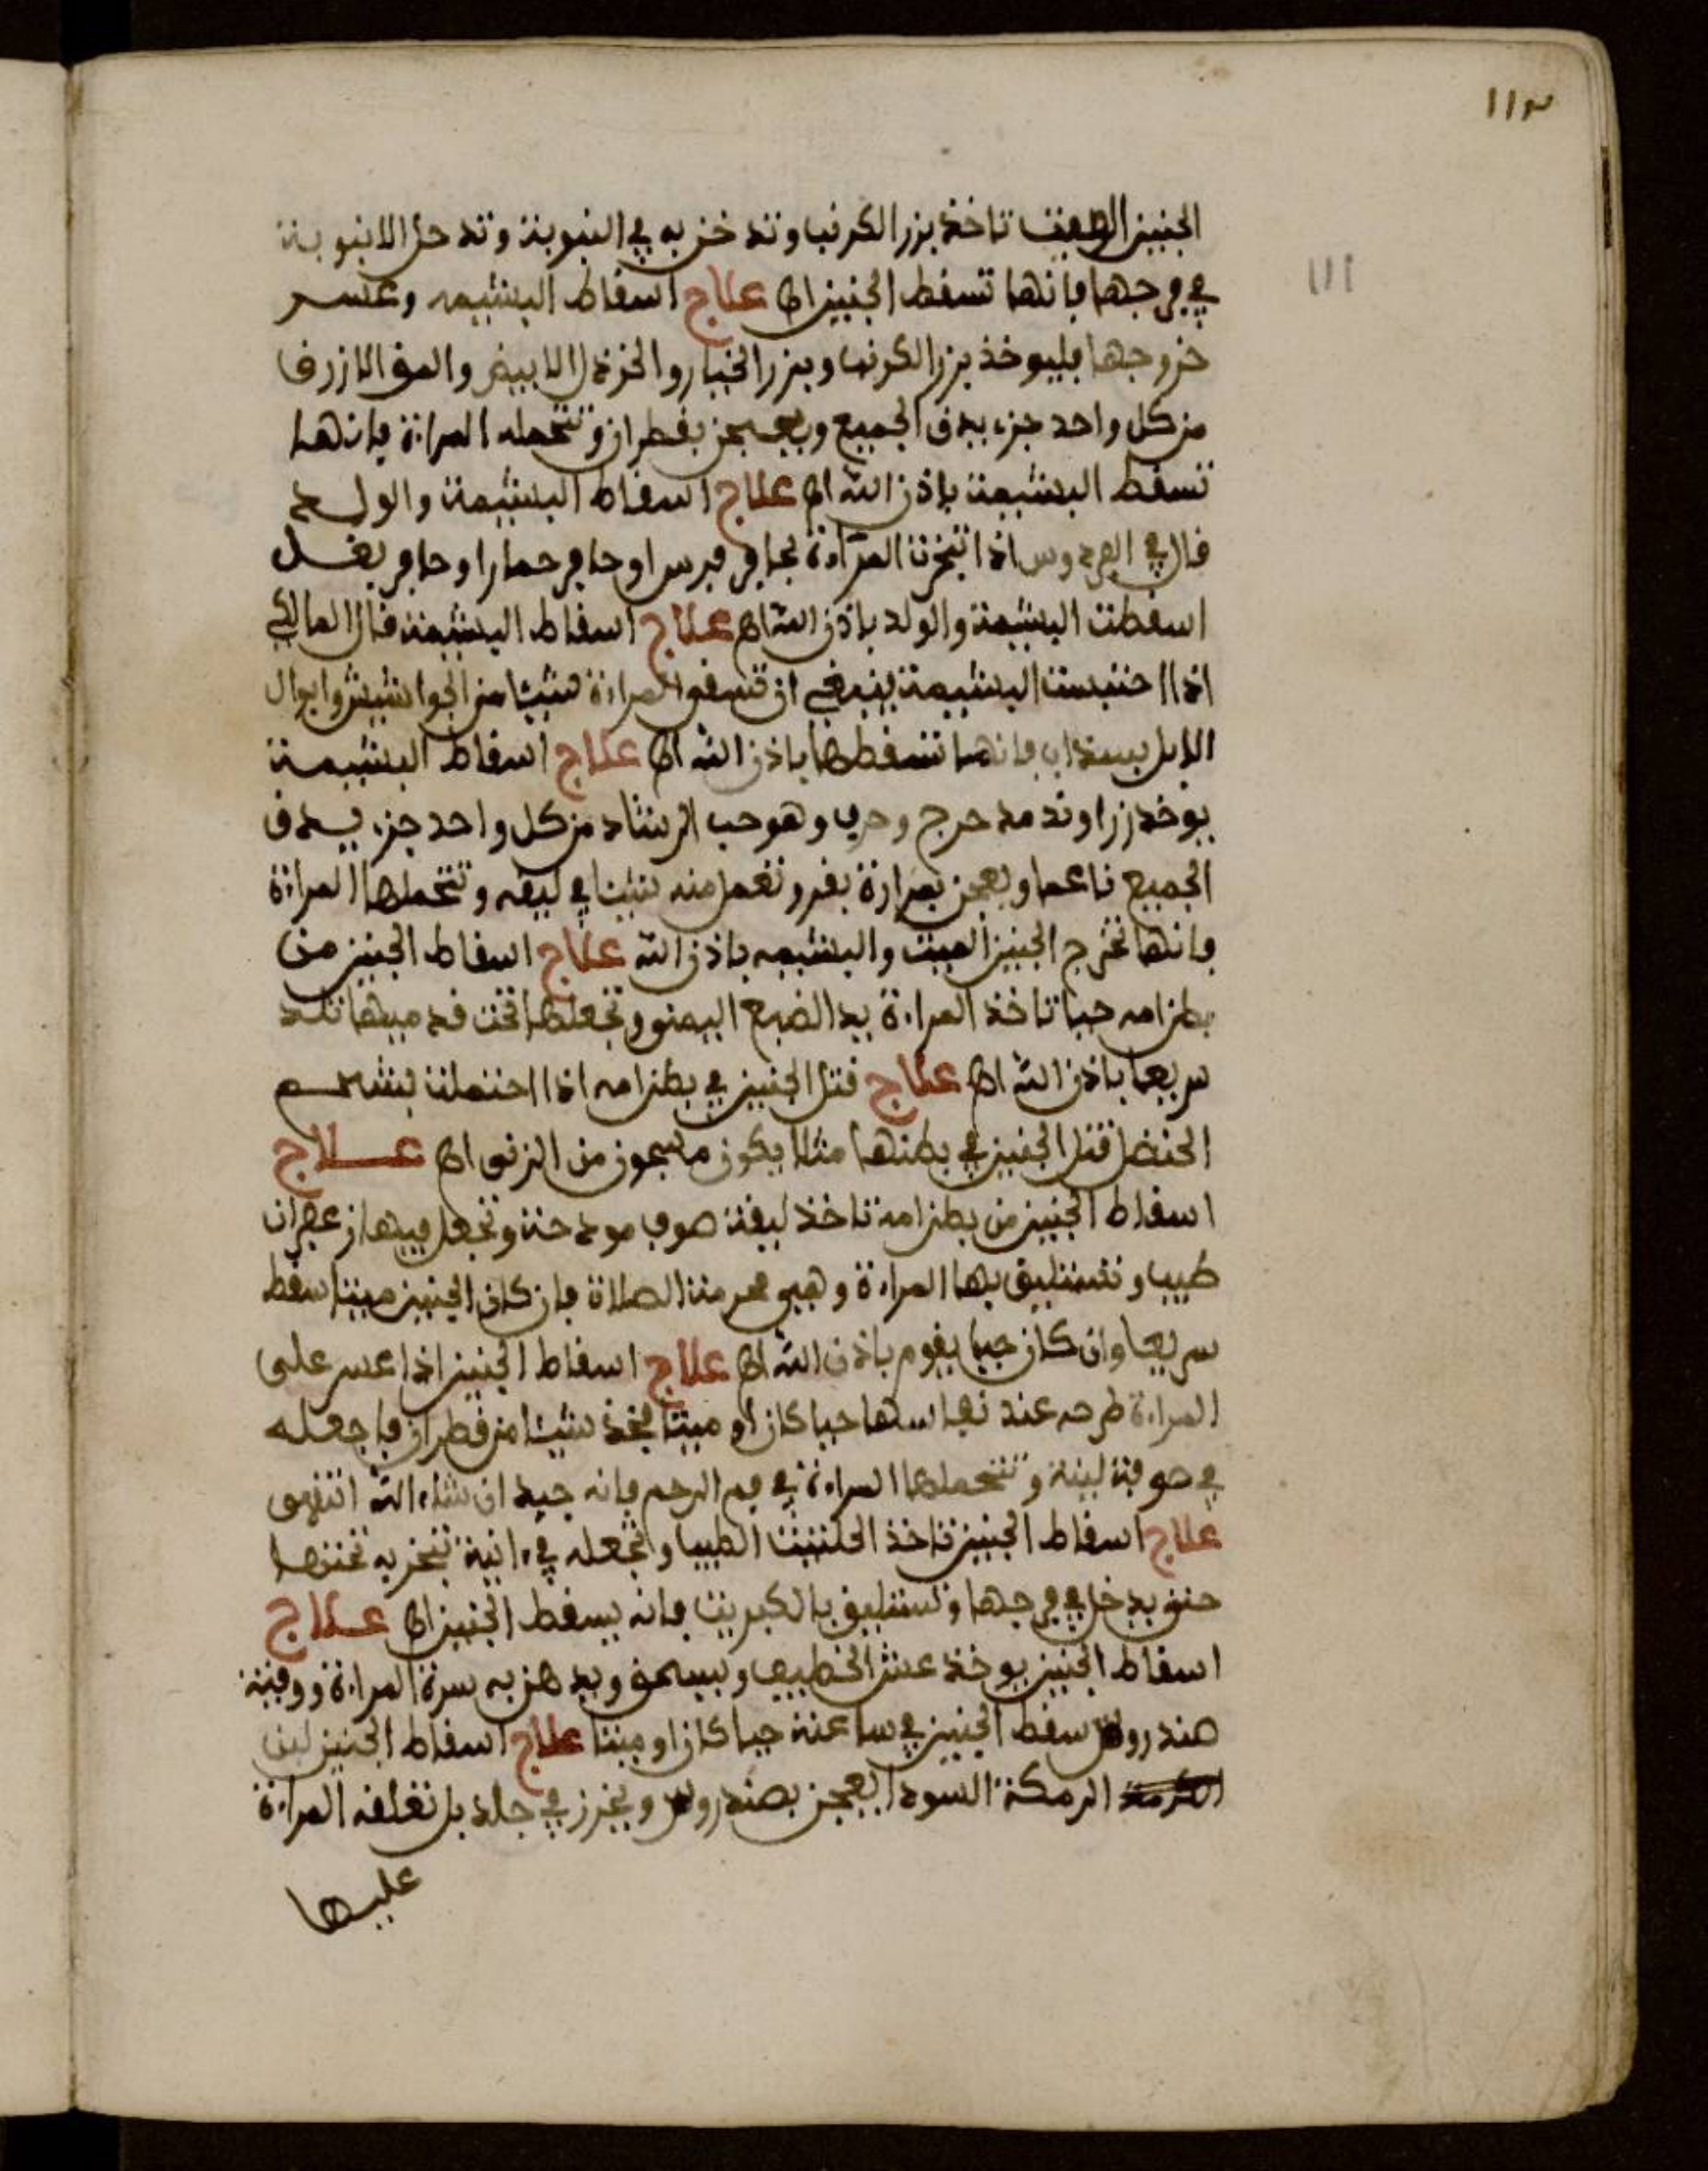 ١١٣
111
الجنين الميت تاخذ بزر الكرنب وتدخن به في انبوبة وتدخل الانبوبة
في فرجها فانها تسقط الجنين اه علاج اسقاط المشيمه وعسر
خروجها فليوخذ بزر الكرنب وبزر الخيار والخردل الابيض والمقل الازرق
من كل واحد جزء يدق الجميع ويعجن بقطران وتتحمله المراءة فانها
تسقط المشيمة باذن الله اه علاج اسقاط المشيمة والولد
قال في الفردوس اذا تبخرت المرءاة بحافر فرس او حافر حمار او حافر بغل
اسقطت المشيمة والولد باذن الله اه علاج اسقاط المشيمة قال المالكي
اذا احتبست المشيمة ينبغي ان تسقى المراءة شيئا من الجواشيش وابوال
الابل بسذاب فانها تسقطها باذن الله اه علاج اسقاط المشيمة
يوخذ زراوند مدحرج وحرف وهو حب الرشاد من كل واحد جزء يدق
الجميع ناعما ويعجن بمرارة بقر وتعمل منه شيئا في ليقه وتتحملها المراءة
فانها تخرج الجنين الميت والمشيمه باذن الله علاج اسقاط الجنين من
بطن امه حيا تاخذ المراءة يد الضبع اليمنى وتجعلها تحت قدميها تلد
سريعا باذن الله اه علاج قتل الجنين في بطن امه اذا احتملت بشحم
الحنضل قتل الجنين في بطنها مثلا يكون معجون من الزفت اه علاج
اسقاط الجنين من بطن امه تاخذ ليقة صوف مودحة وتجعل فيها زعفران
طيب وتستليق بها المراءة وهي محرمة الصلاة فان كان الجنين ميتا سقط
سريعا وان كان حيا يقوم باذن الله اه علاج اسقاط الجنين اذا عسر على
المراءة طرحه عند نفاسها حيا كان او ميتا فخذ شيئا من قطران فاجعله
في صوفة لينة وتتحملها المراءة في فم الرحم فانه جيد ان شاء الله انتهى
علاج اسقاط الجنين تاخذ الحلتيت الطيب وتجعله في ءانية تبخر به تحتها
حتى يدخل في فرجها وتستليق بالكبريت فانه يسقط الجنين اه علاج
اسقاط الجنين يوخذ عش الخطيف ويسحق ويدهن به سرة المراءة ووقبته
صندروس سقط الجنين في ساعته حيا كان او ميتا علاج اسقاط الجنين لبن
الرمكة السودا يعجن بصندروس ويخرز في جلد بل تعلقه المراءة
عليها